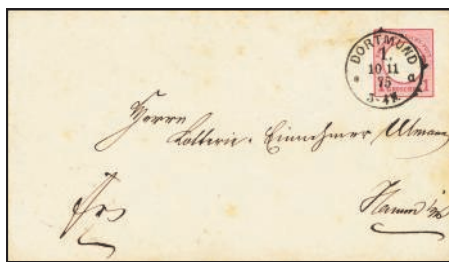 DORTMUND
1.
10 11
75
3-4N.
1 1
Herrn
Lotterie-Einnehmer Ulmann
Hamm i/W